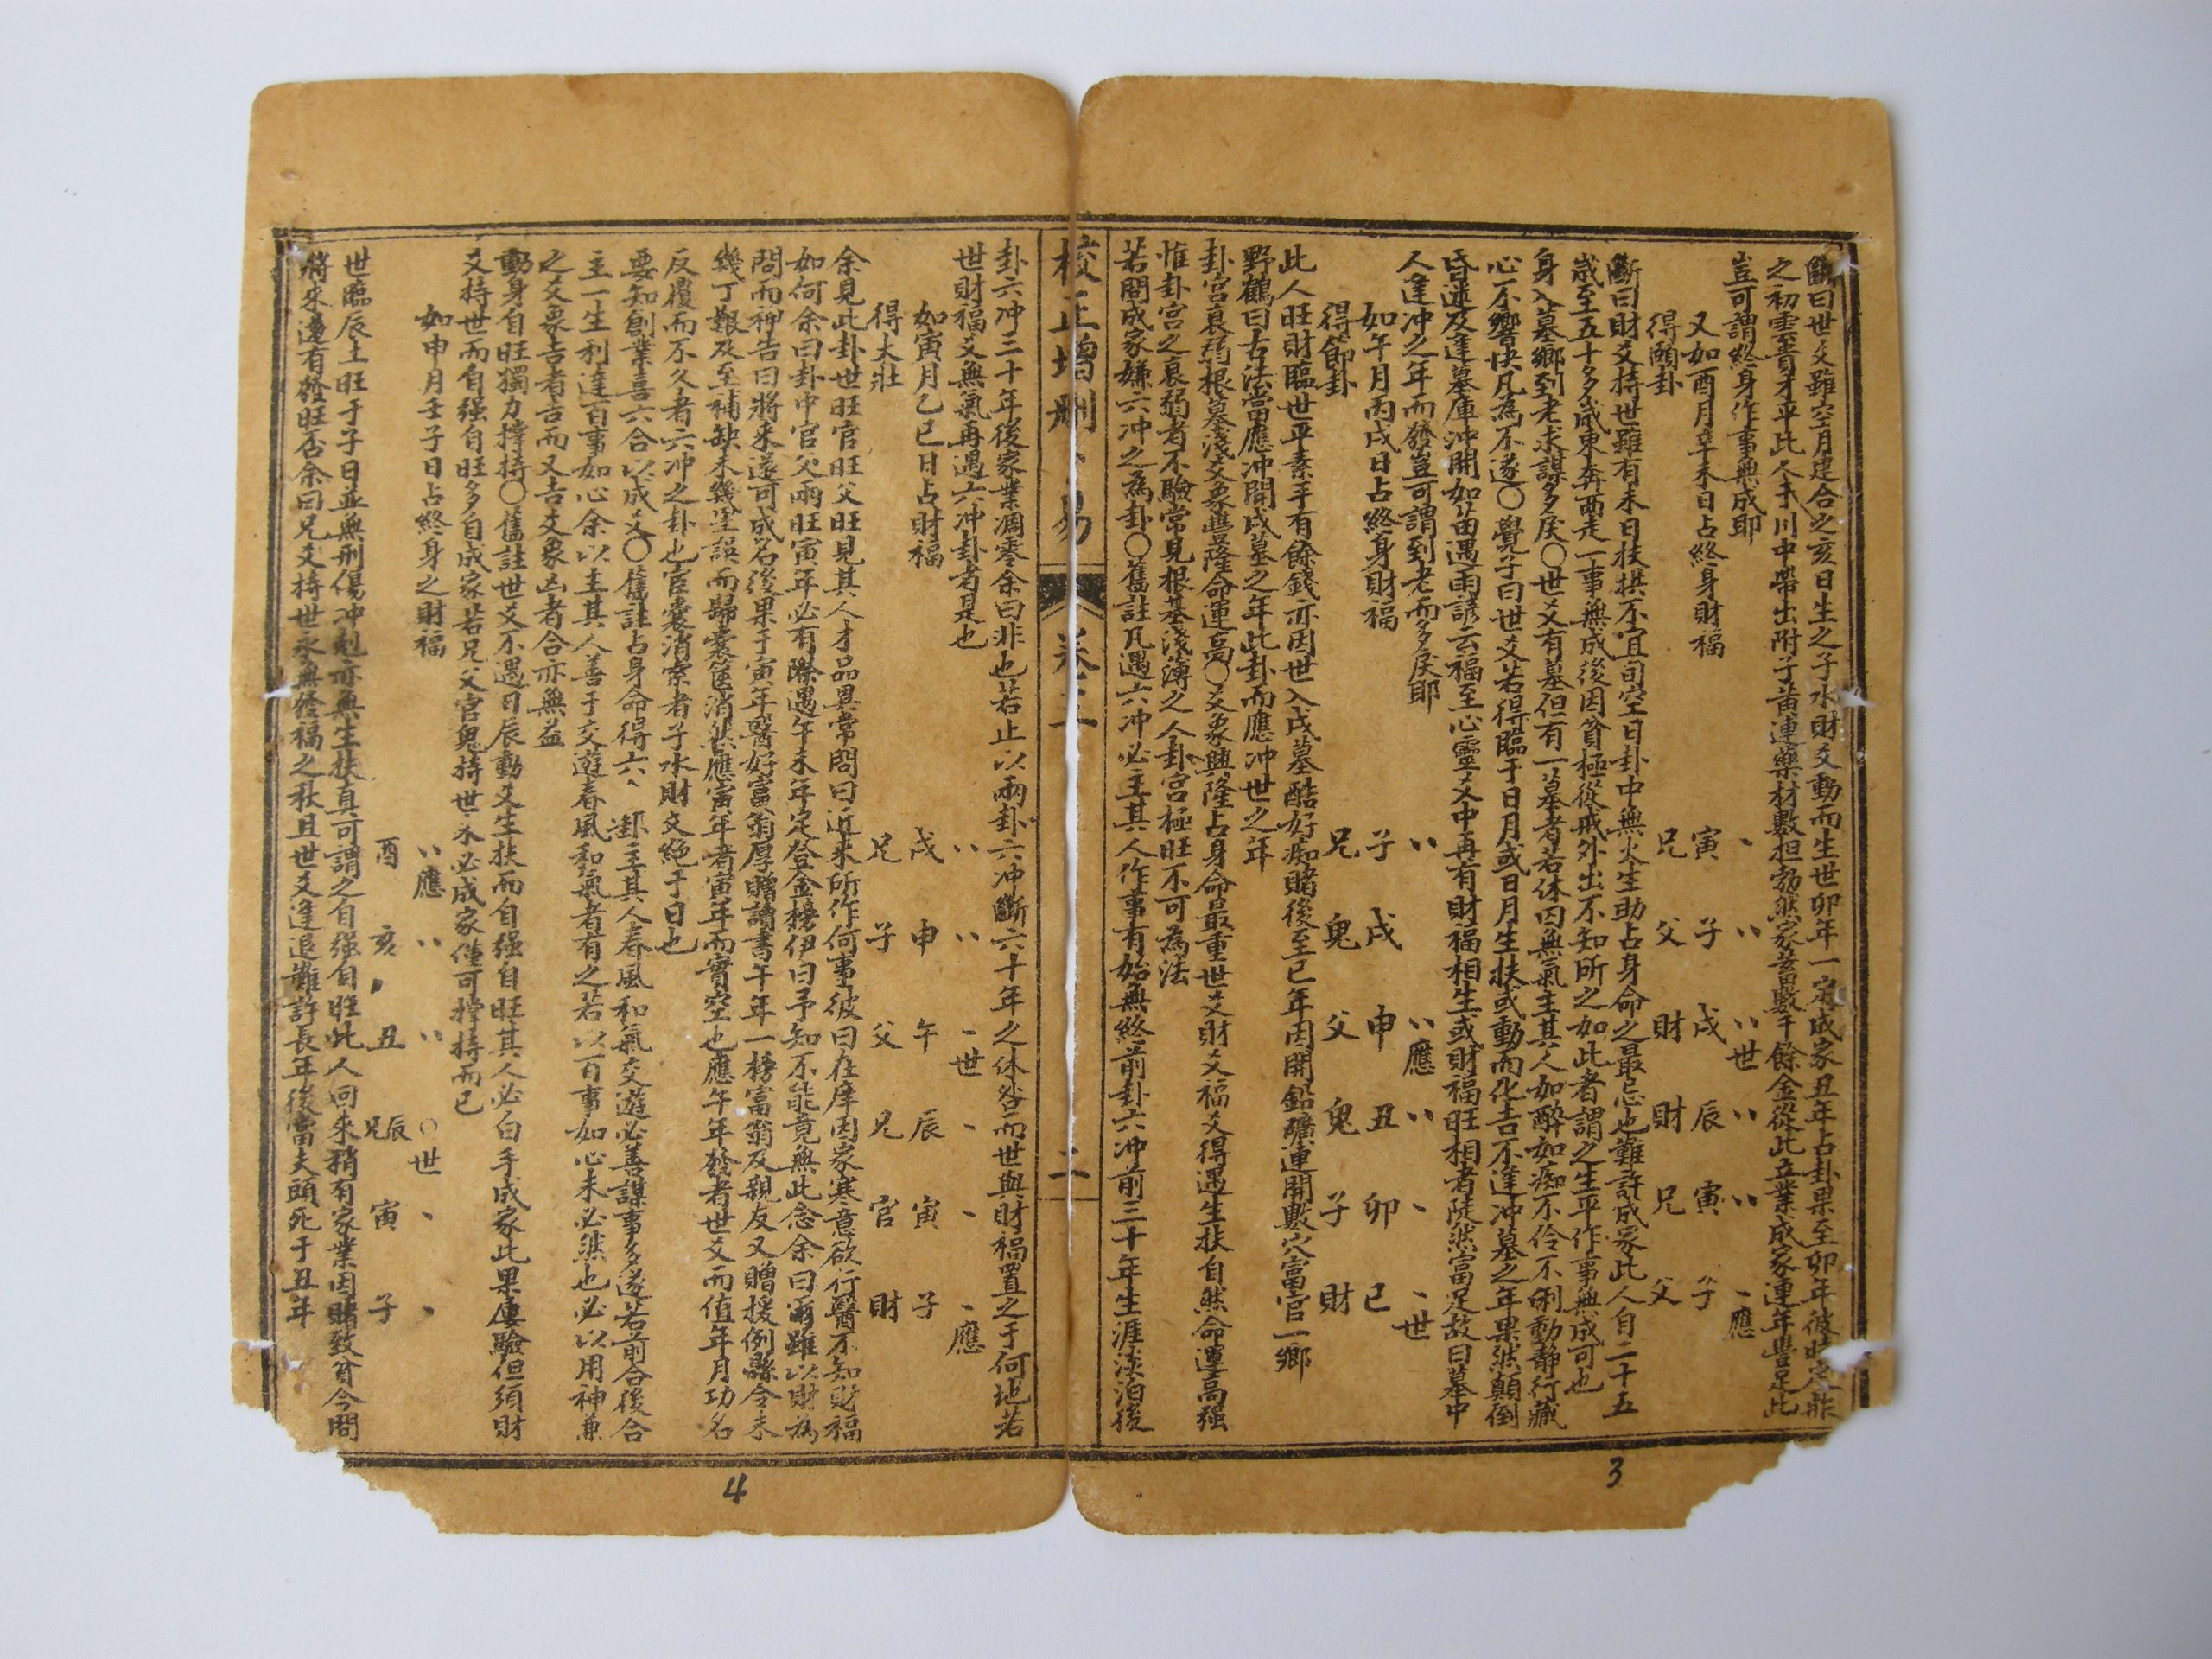 斷曰世爻雖空月建合之亥日生之子水財爻動而生世卯年一定成家丑年占卦果至卯年彼時
之初雲貴才平此人于川中帶出附子黃連藥材數担勃然家蓄數千餘金從此立業成家連年豐足此
豈可謂終身作事無成耶
又如酉月辛未日占終身財福
得頤卦
寅 子 戌世 辰 寅 子應
兄 父 財 財 兄 父
斷曰財爻持世雖有未日扶拱不宜旬空日卦中無火生助占身命之最忌也難許成家此人自二十五
歲至五十多歲東奔西走一事無成後因貧極從戒外出不知所之如此者謂之生平作事無成可也
身入墓鄉到老求謀多戾〇世爻有墓但有一墓者若休囚無氣主其人如醉如痴不伶不俐動靜行藏
心不響快凡為不遂〇覺子曰世爻若得臨于日月或日月生扶或動而化吉不逢冲墓之年果然顛倒
昏迷及逢墓庫沖開如苗遇雨諺云福至心靈爻中再有財福相生或財福旺相者陡然富足故曰墓中
人逢冲之年而發豈可謂到老而多戾耶
如午月丙戌日占終身財福
得節卦
子 戌 申應 丑 卯 巳世
兄 鬼 父 鬼 子 財
此人旺財臨世平素手有餘錢亦因世入戌墓酷好痴賭後至巳年因開鉛礦連開數穴富官一鄉
野鶴曰古法當應沖開戌墓之年此卦而應冲世之年
卦宮衰弱根基淺爻象豐隆命運高〇爻象興隆占身命最重世爻財爻福爻得遇生扶自然命運高强
惟卦宮之衰弱者不驗常見根基淺薄之人卦宮極旺不可為法
若問成家嫌六冲之為卦〇舊註凡遇六冲必主其人作事有始無終前卦六冲前三十年生涯淡泊後
校正增刪卜易 卷三 二
卦六冲二十年後家業凋零余曰非也若止以兩卦六冲斷六十年之休咎而世與財福置之于何地若
世財福爻無氣再遇六冲卦者是也
如寅月乙巳日占財福
得大壯
戌 申 午世 辰 寅 子應
兄 子 父 兄 官 財
余見此卦世旺官旺父旺見其人才品異常問曰近來所作何事彼曰在庠因家寒意欲行醫不知財福
如何余曰卦中官父兩旺寅年必有際遇午未年定登金榜伊曰予知不能竟無此念余曰爾雖以財為
問而神告曰將來遂可成名後果于寅年醫好富翁厚贈讀書午年一榜富翁及親友又贈援例縣令未
幾丁艱及至補缺未幾罣誤而歸囊篋消然應寅年者寅年而實空也應午年發者世爻而值年月功名
反覆而不久者六冲之卦也宦囊消索者子水財爻絶于日也
要知創業喜六合以成爻〇舊註占身命得六 卦主其人春風和氣交遊必善謀事多遂若前合後合
主一生利達百事如心余以主其人善于交遊春風和氣者有之若以百事如心未必然也必以用神兼
之爻象吉者吉而又吉爻象凶者合亦無益
動身自旺獨力撑持〇舊註世爻不遇日辰動爻生扶而自强自旺其人必白手成家此果屢驗但須財
爻持世而自强自旺多自成家若兄父官鬼持世未必成家僅可撑持而已
如申月壬子日占終身之財福
酉應 亥 丑 辰世 寅 子
兄
世臨辰土旺于子日並無刑傷冲剋亦無生扶真可謂之自强自旺此人向來稍有家業因賭致貧今問
將來還有發旺否余曰兄爻持世永無發福之秋且世爻逢退難許長年後當夫頭死于丑年
3
4